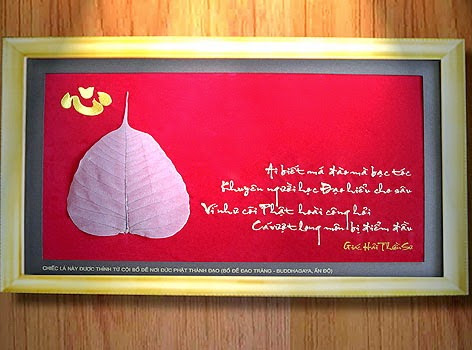 心
Ai biết má đào mà bạc tóc
Khuyên người học Đạo hiểu cho sâu
Ví như cõi Phật hoài công hỏi
Cá vượt long môn bị điểm đầu
Giác Hải Thiền Sư
CHIẾC LÁ NÀY ĐƯỢC THỈNH TỪ CỘI BỒ ĐỀ NƠI ĐỨC PHẬT THÀNH ĐẠO (BỒ ĐỀ ĐẠO TRÀNG - BUDDHAGAYA, ẤN ĐỘ)